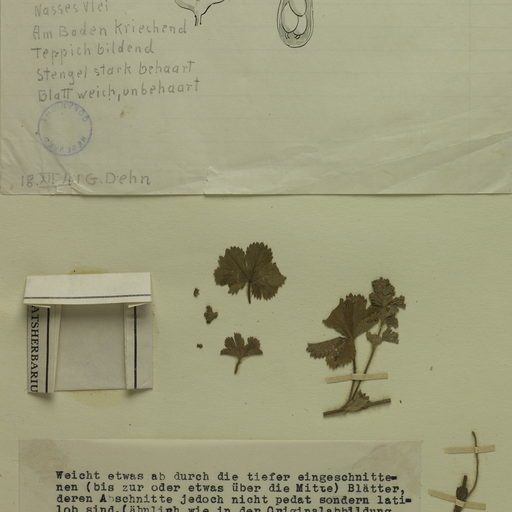 Nasses Vlei
Am Boden Kriechend
Teppich bildend
Stengel stark behaart
Blatt weich, unbehaart
18.XII.41 G. Dehn
ATSHERBARIU
Weicht etwas ab durch die tiefer eingeschnitte-
nen (bis zur oder etwas über die Mitte) Blätter,
deren Abschnitte jedoch nicht pedat sondern lati-
lob sind.(ähnlich wie in der Originalabbildung